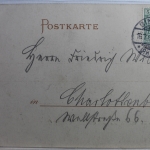 POSTKARTE
Herrn Friedrich
in Charlottenb
Wallstraße 66.